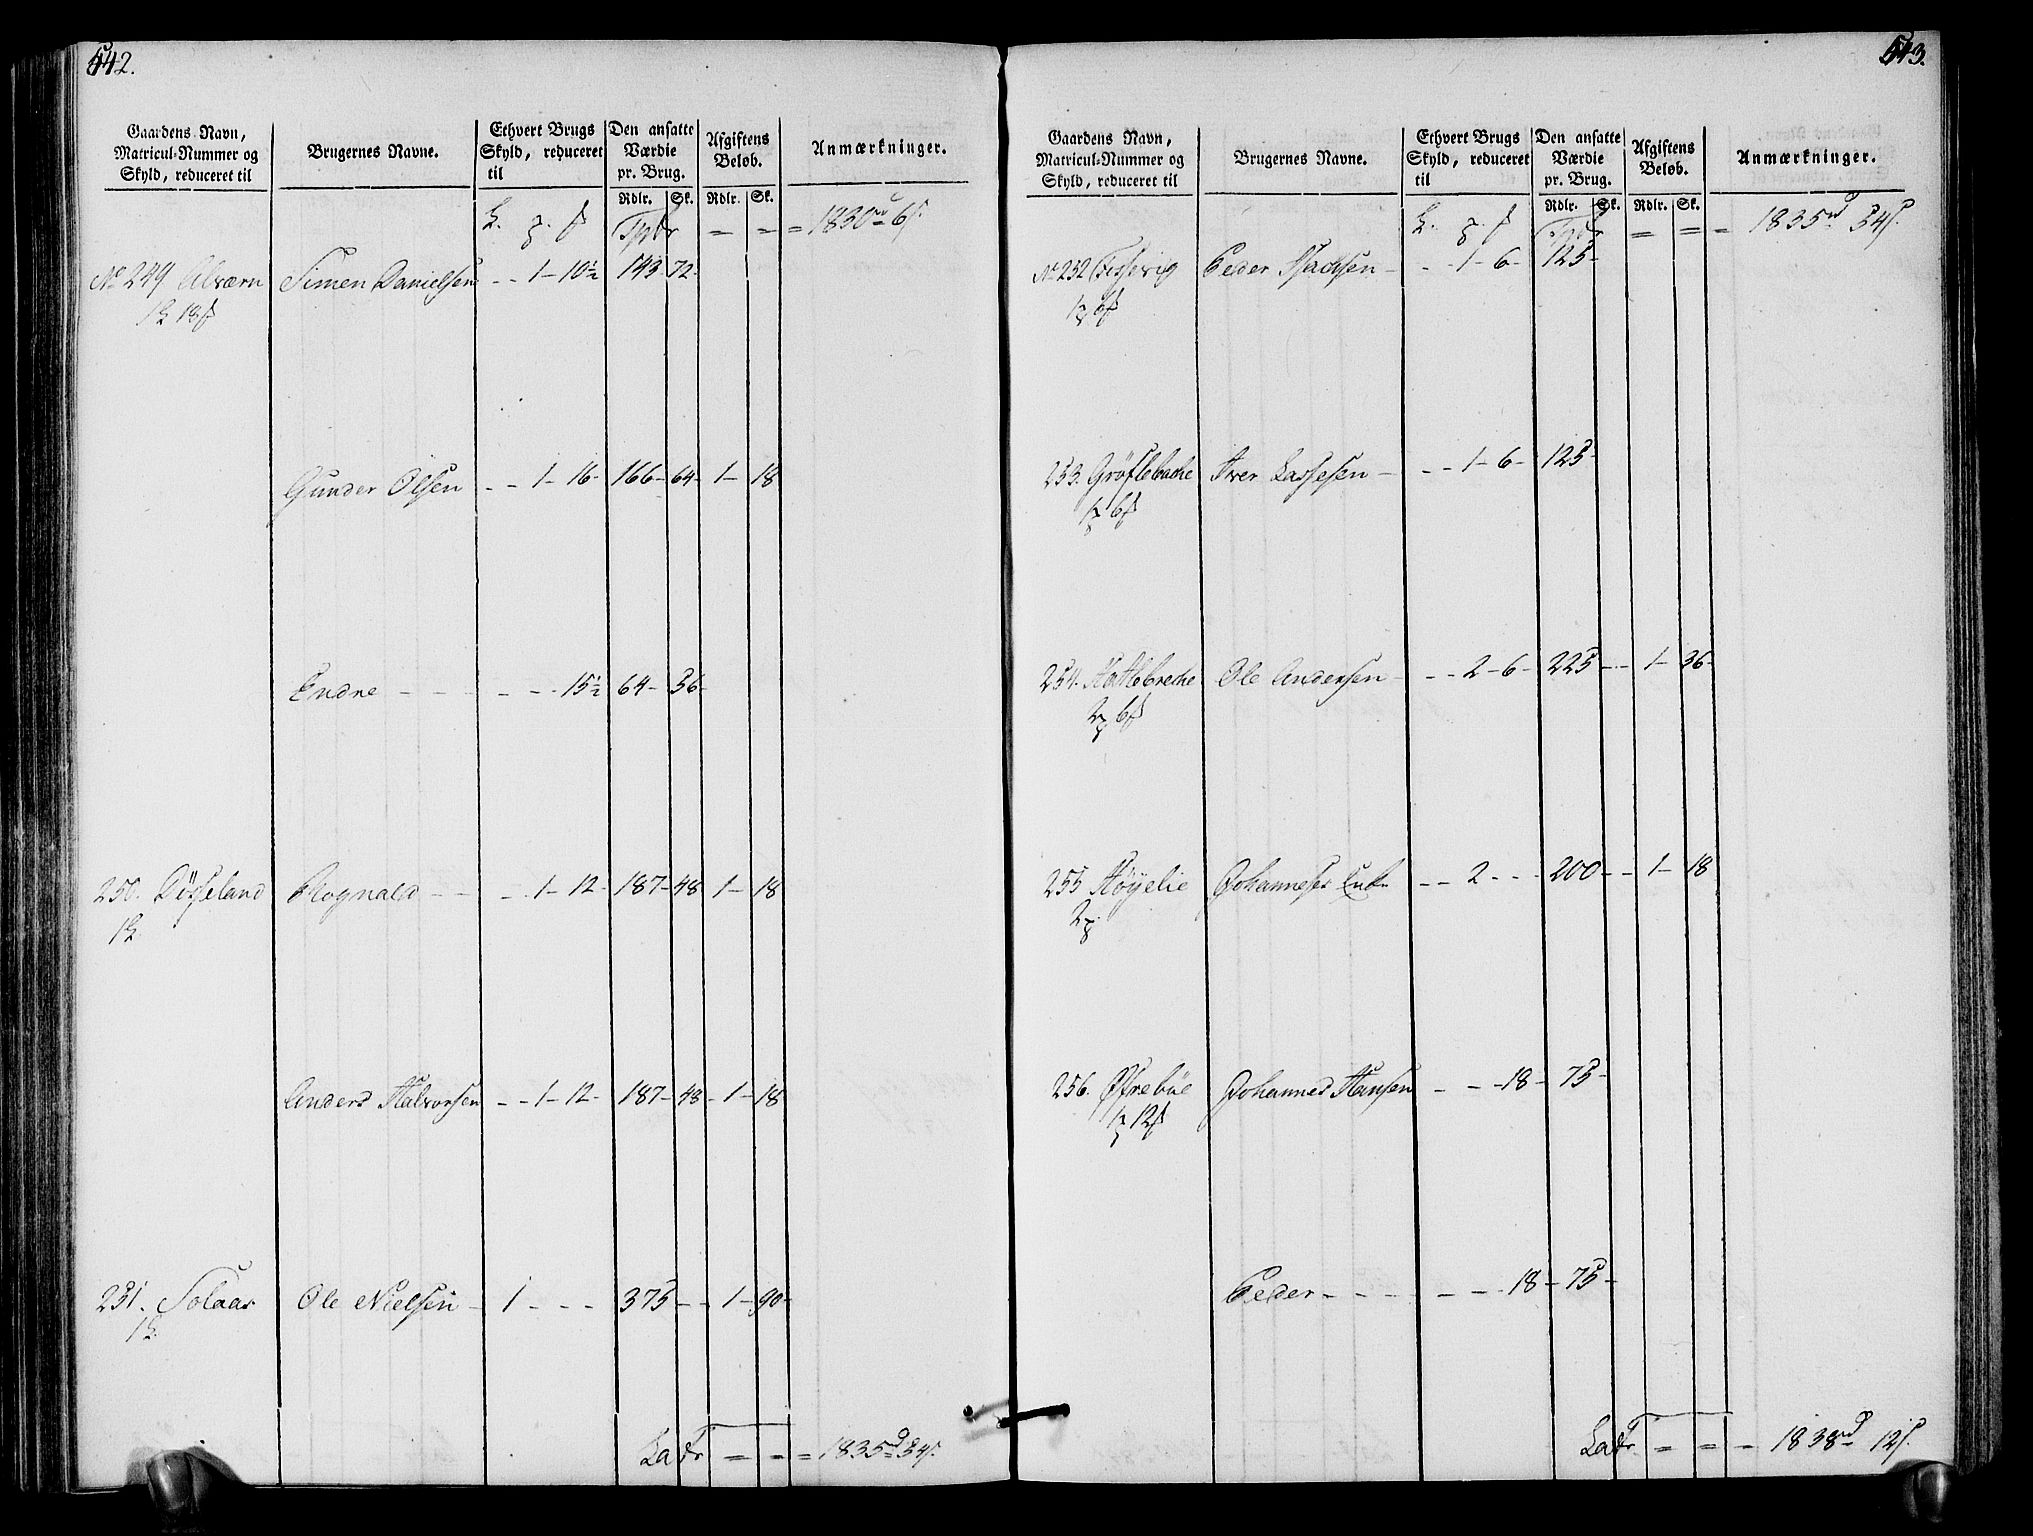 542.
Gaardens Navn,
Matricul-Nummer og
Skyld, reduceret til
Brugernes Navne.
Ethvert Brugs
Skyld, reduceret
til
Den ansatte
Værdie
pr. Brug.
Rdlr. Sk.
Afgiftens
Beløb.
Rdlr. Sk.
Anmærkninger.
Tpdr = = = 1830 rd 6 s.
No 249 Alværn Simen Danielsen - - 1 - 10½ 143 72.
18
Gunder Olsen - - 1 - 16 - 166 - 64 - 1 - 18
Endne - - - - - - 15½ 64 - 36 -
250. Døsseland Rognald - - - - 1 - 12 - 187 - 48 1 - 18
Anders Halvorsen - - 1 - 12 - 187 - 48 - 1 - 18
251. Solaas Ole Nielsen - 1 - - - 375 - - 1 - 90 -
LaTr = = = 1835 d 34 s.
543.
Gaardens Navn,
Matricul-Nummer og
Skyld, reduceret til
Brugernes Navne.
Ethvert Brugs
Skyld, reduceret
til
Den ansatte
Værdie
pr. Brug.
Rdlr. Sk.
Afgiftens
Beløb.
Rdlr. Sk.
Anmærkninger.
Tpdr = = = 1835 rd 34 s
No 252 Peder Isachsen - - - 1 - 6 - 125 -
6
253. Grøflebache Iver Lassesen - - - 1 - 6 - 125 -
6
254. Hatlebreche Ole Andersen - - - 2 - 6 - 225 - - 1 - 36 -
2 6
255 Høyelie Johanneses Enke - - 2 - - - 200 - - 1 - 18
2
256. Øfrebøe Johannes Hansen - - - 18 - 75 -
12
Peder - - - - - - 18 - 75 -
LaTr = = = 1838 rd 12 s.